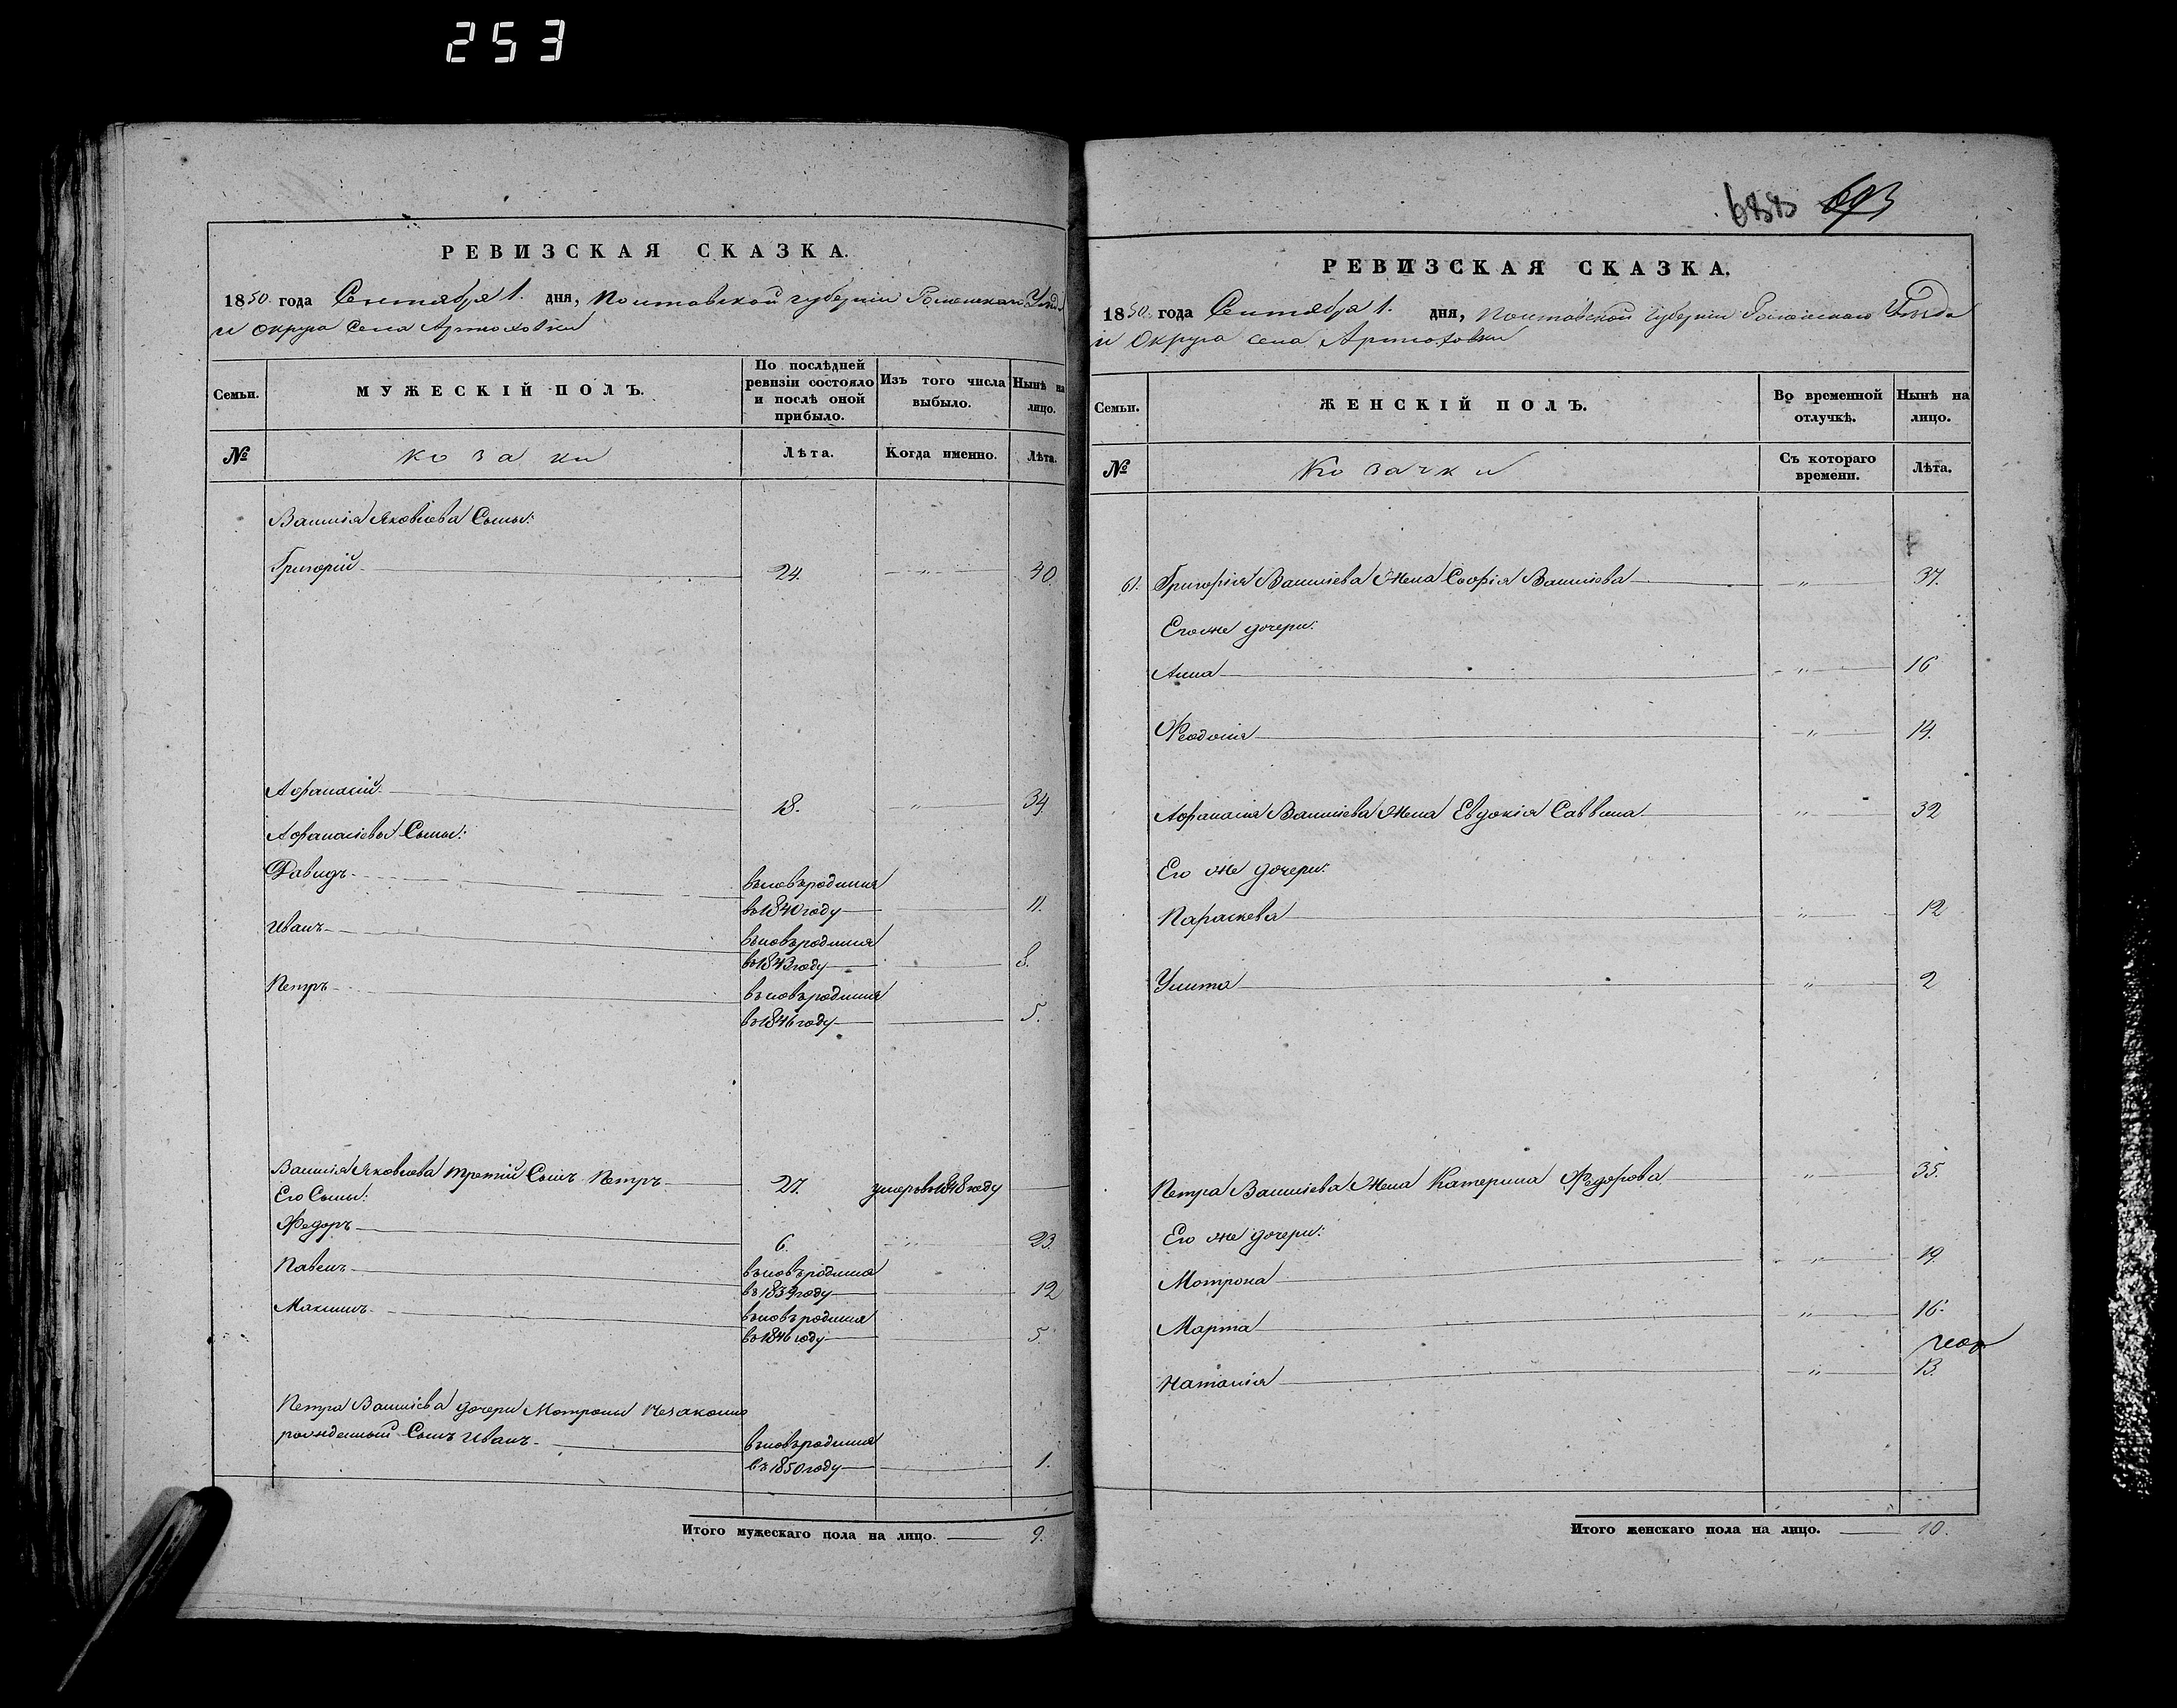 253
РЕВИЗСКАЯ СКАЗКА.
1850 года Сентября 1. дня, Полтавской губерніи Роменскаго Уѣзда
и округа Села Артюховки
Семьи. МУЖЕСКІЙ ПОЛЪ. По послѣдней ревизіи состояло и послѣ оной прибыло. Изъ того числа выбыло. Нынѣ на лицо.
№ Козаки Лѣта. Когда именно. Лѣта.
Василія Яковлева Сыны:
Григорій 24. " 40.
Афанасій 18. " 34.
Афанасіевы Сыны:
Давидъ вновь родился
въ 1840 году 11.
Иванъ вновь родился
въ 1843 году 8.
Петръ вновь родился
въ 1846 году 5.
Василія Яковлева третій Сынъ Петръ 27. умеръ въ 1848 году
Его Сыны:
Федоръ 6. " 23.
Павелъ вновь родился
въ 1839 году 12
Максимъ вновь родился
въ 1846 году 5.
Петра Василіева дочери Мотроны незаконно
рожденный Сынъ Иванъ вновь родился
въ 1850 году 1.
Итого мужескаго пола на лицо. 9.
688 693
РЕВИЗСКАЯ СКАЗКА.
1850 года Сентября 1. дня, Полтавской Губерніи Роменскаго Уѣзда
и Округа села Артюховки
Семьи. ЖЕНСКІЙ ПОЛЪ. Во временной отлучкѣ. Нынѣ на лицо.
№ Козачки Съ котораго времени. Лѣта.
61. Григорія Василіева Жена Софія Василіева " 37.
Его же дочери:
Анна " 16
Феодосія " 14.
Афанасія Василіева Жена Евдокія Саввина " 32
Его же дочери:
Параскева " 12
Улита " 2
Петра Василіева Жена Катерина Федорова " 35.
Его же дочери:
Мотрона " 19.
Марта " 16.
Наталія " 13.
Итого женскаго пола на лицо. 10.